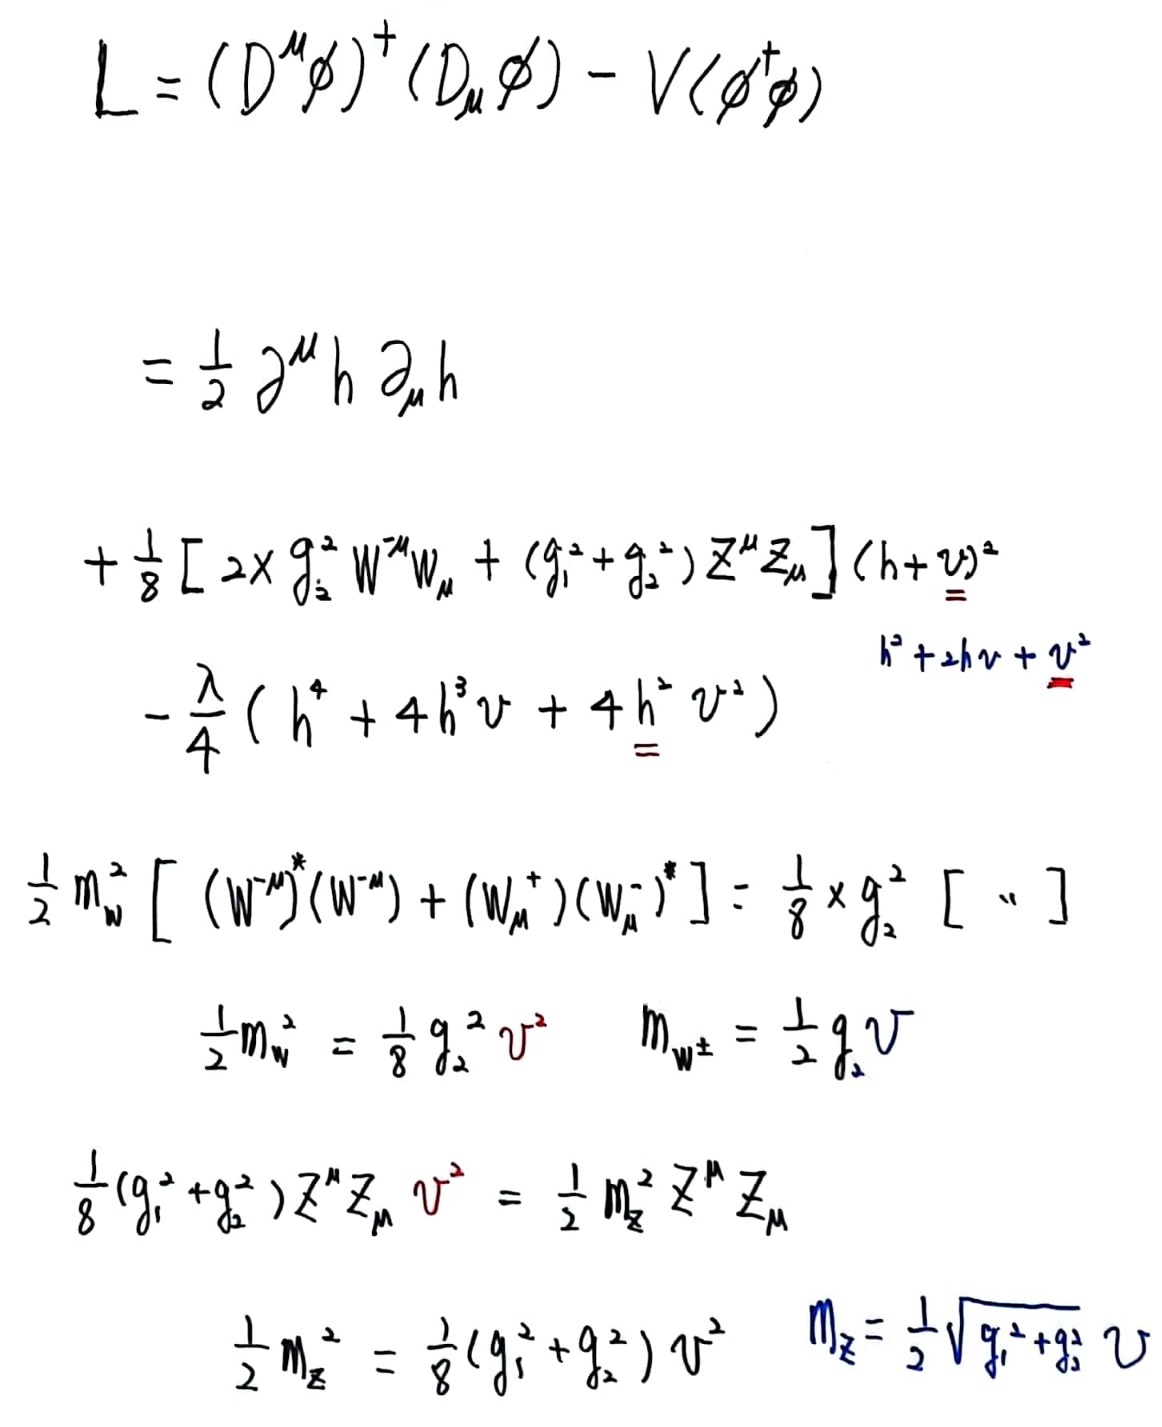 L = (D^μ φ)^† (D_μ φ) - V(φ^† φ)
= 1/2 ∂^μ h ∂_μ h
+ 1/8 [ 2 × g_2^2 W^{-μ} W_μ + (g_1^2 + g_2^2) Z^μ Z_μ ] (h + v)^2
h^2 + 2hv + v^2
- λ/4 ( h^4 + 4h^3 v + 4h^2 v^2 )
1/2 m_W^2 [ (W^{-μ})^* (W^{-μ}) + (W_μ^+)(W_μ^-)^* ] = 1/8 × g_2^2 [ " ]
1/2 m_W^2 = 1/8 g_2^2 v^2    m_{W^±} = 1/2 g_2 v
1/8 (g_1^2 + g_2^2) Z^μ Z_μ v^2 = 1/2 m_Z^2 Z^μ Z_μ
1/2 m_Z^2 = 1/8 (g_1^2 + g_2^2) v^2    m_Z = 1/2 √(g_1^2 + g_2^2) v